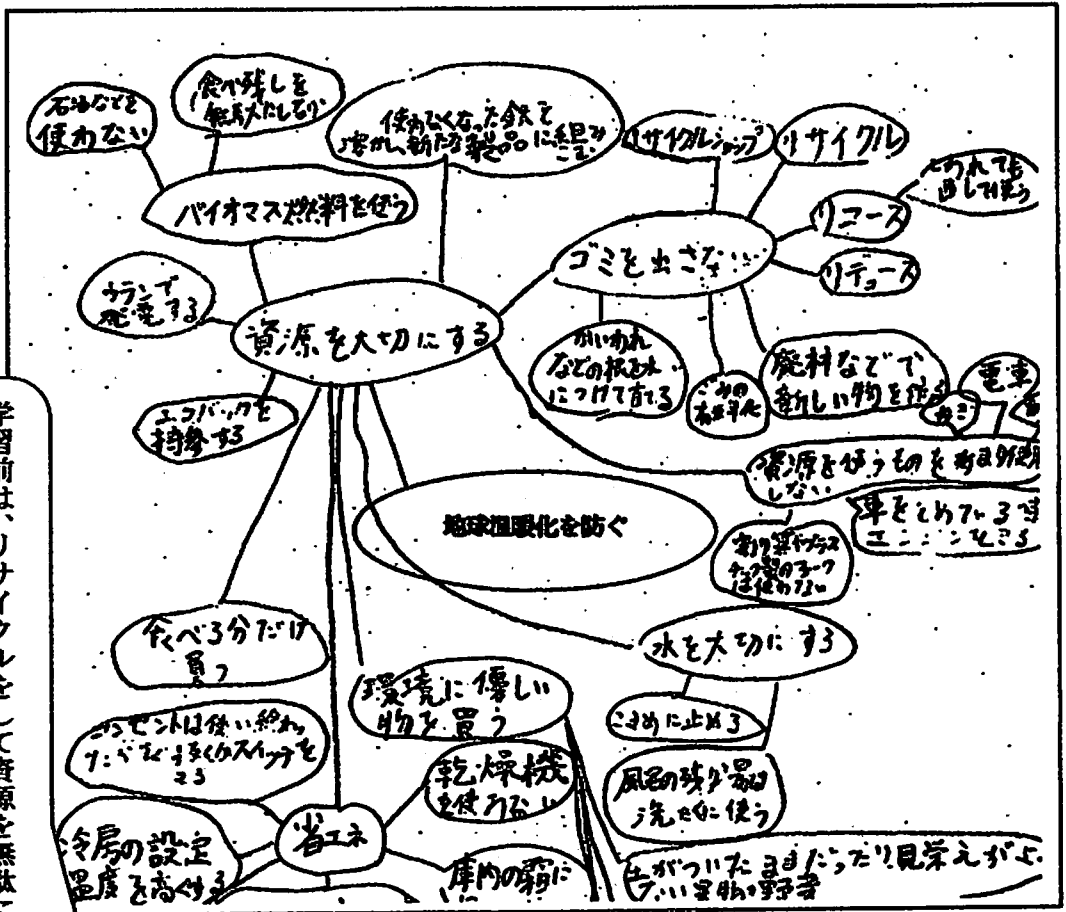 石油などを
使わない
食べ残しを
無駄にしない
使わなくなった鉄を
溶かし、新たな製品に組み
こむ
リサイクルショップ
リサイクル
こわれても
直して使う
バイオマス燃料を使う
リユース
ゴミを出さない
リデュース
ウランで
発電する
資源を大切にする
かいわれ
などの根を水
につけて育てる
ごみの
有料化
廃料などで
新しい物を作る
電車
エコバックを
持参する
資源を使うものをあまり使用
しない
車をとめている時
エンジンをきる
地球温暖化を防ぐ
割り箸やプラス
チック製のフォーク
は使わない
食べる分だけ
買う
水を大切にする
環境に優しい
物を買う
こまめに止める
コンセントは使い終わっ
たらすぐ抜くかスイッチを
きる
乾燥機
を使わない
風呂の残り湯は
洗たくに使う
省エネ
冷房の設定
温度を高くする
庫内の霜に
土がついたままだったり見栄えがよ
くない果物や野菜
学習前は、リサイクルをして資源を無駄に